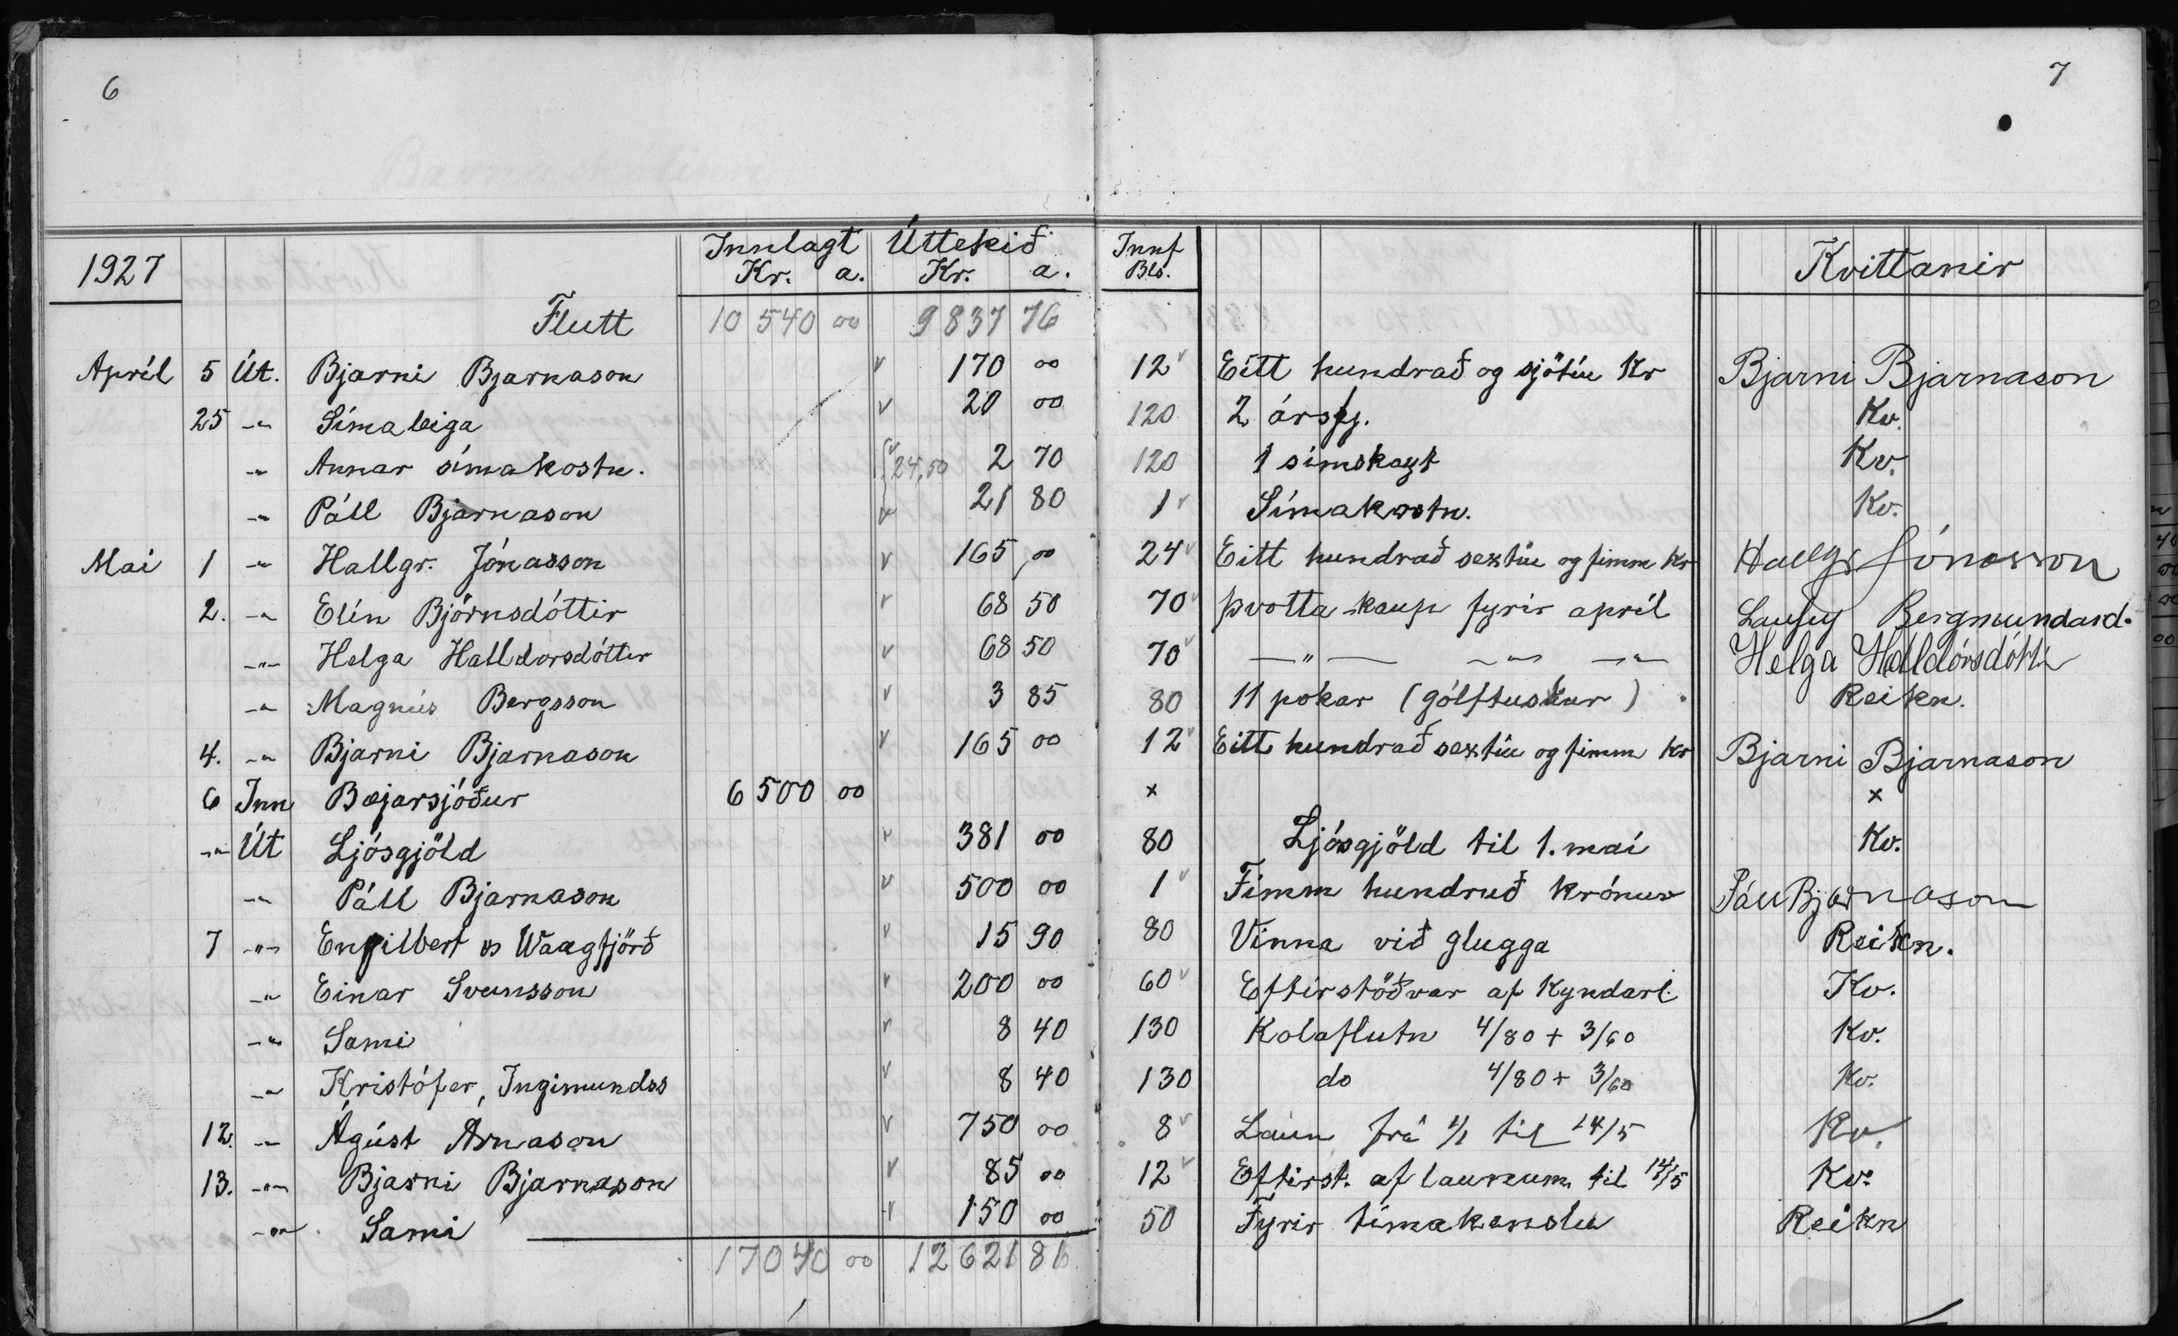 6
7
1927 Innlagt Úttekið Innf Kvittanir
Kr. a. Kr. a. Bls.
Flutt 10 540 00 9 837 76
Apríl 5 Út. Bjarni Bjarnason 170 00 12 Eitt hundrað og sjötíu Kr Bjarni Bjarnason
25 -"- Símaleiga 20 00 120 2 ársfj. Kv.
-"- Annar símakostn. 24,50 2 70 120 1 símskeyt Kv.
-"- Páll Bjarnason 21 80 1 Símakostn. Kv.
Mai 1 -"- Hallgr. Jónasson 165,00 24 Eitt hundrað sextíu og fimm kr Hallgr Jónasson
2. -"- Elín Björnsdóttir 68 50 70 þvotta kaup fyrir apríl Laufey Bergmundard.
-"- Helga Halldorsdóttir 68 50 70 -"- -"- -"- Helga Halldórsdóttir
-"- Magnús Bergsson 3 85 80 11 pokar (gólftuskur) Reikn.
4. -"- Bjarni Bjarnason 165 00 12 Eitt hundrað sextíu og fimm kr Bjarni Bjarnason
6 Inn Bæjarsjóður 6 500 00 x x
-"- Út Ljósgjöld 381 00 80 Ljósgjöld til 1. maí Kv.
-"- Páll Bjarnason 500 00 1 Fimm hundruð krónur Páll Bjarnason
7 -"- Engilbert & Waagfjörð 15 90 80 Vinna við glugga Reikn.
-"- Einar Sveinsson 200 00 60 Eftirstöðvar af Kyndarl. Kv.
-"- Sami 8 40 130 Kolaflutn 4/80 + 3/60 Kv.
-"- Kristófer, Ingimundss 8 40 130 do 4/80 + 3/60 Kv.
12. -"- Ágúst Árnason 750 00 8 Laun frá 1/1 til 14/5 Kv.
13. -"- Bjarni Bjarnason 85 00 12 Eftirst. af launum til 14/5 Kv.
-"- Sami 150 00 50 Fyrir tímakenslu Reikn
17040 00 12 621 81